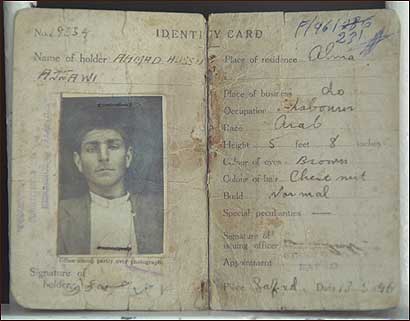 No. 9234
IDENTITY CARD
F/461
221
Name of holder AMJAD HUSSIN
AJJAWI
Place of residence Alma
Place of business do
Occupation Labourer
Race Arab
Height 5 feet 8 inches
Colour of eyes Brown
Colour of hair Chest nut
Build Normal
Special peculiarities —
Signature of
issuing officer
Appointment
Place Safad Date
Office stamp partly over photograph
Signature of
holder